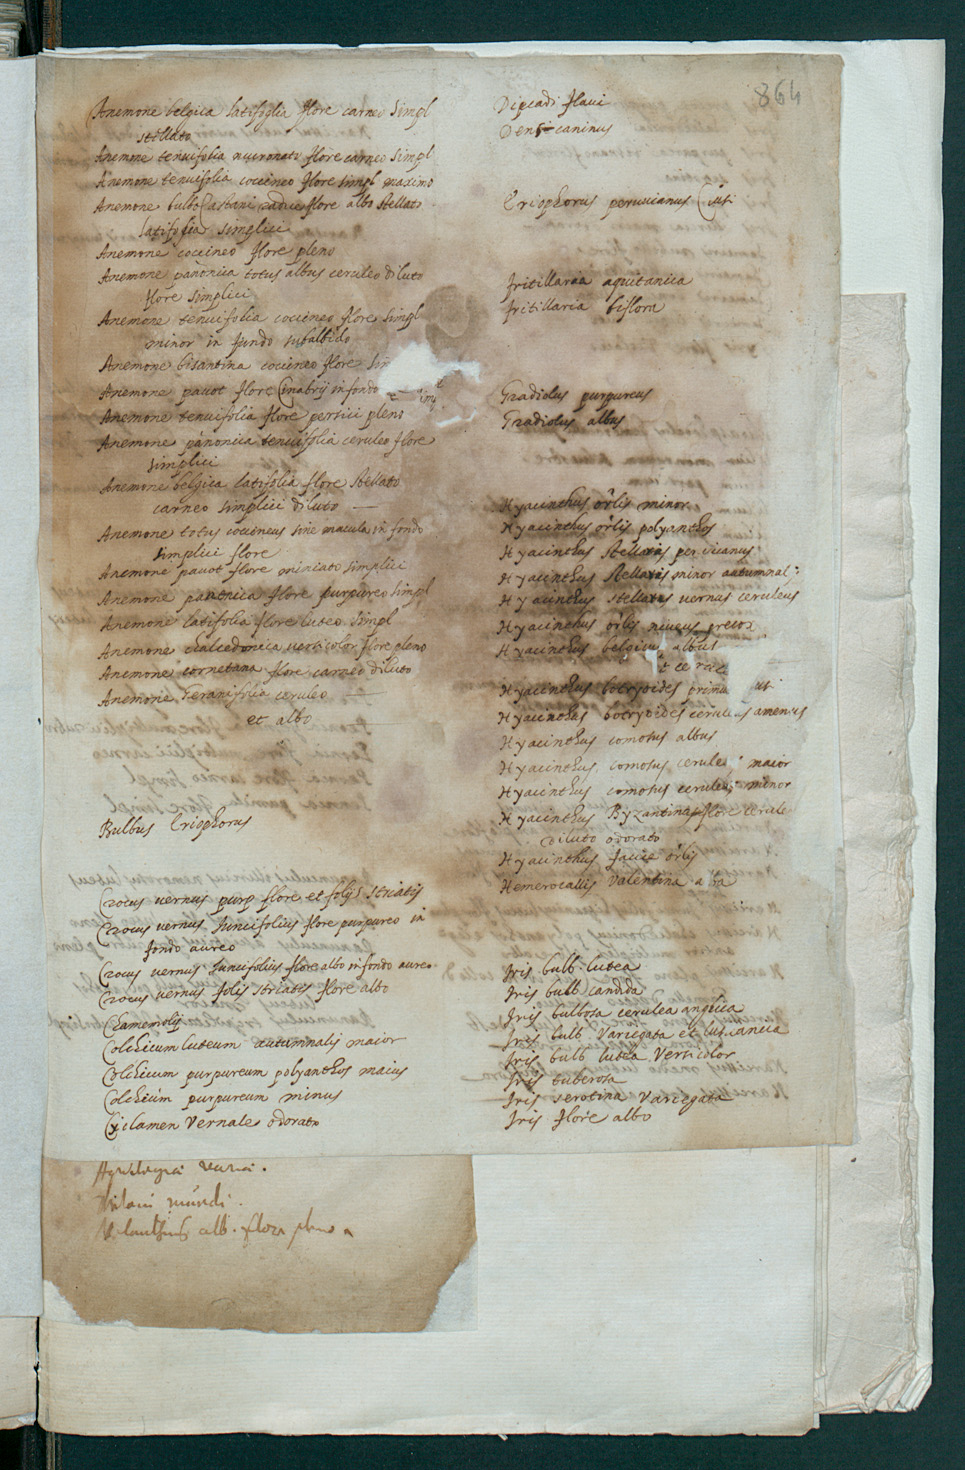 864
Anemone belgica latifoglia flore carneo simpl
stellato
Anemone tenuifolia mucronato flore carneo simpl
Anemone tenuifolia coccineo flore simpl maximo
Anemone bulbo Castani radice flore albo stellato
latifolia simplici
Anemone coccineo flore pleno
Anemone panonica totus albus ceruleo diluto
flore simplici
Anemone tenuifolia coccineo flore simpl
minor in fundo subalbido
Anemone bisantina coccineo flore sim
Anemone pavot flore Cinabrij in fondo
Anemone tenuifolia flore persici pleno
Anemone panonica tenuifolia ceruleo flore
simplici
Anemone belgica latifolia flore stellato
carneo simplici diluto
Anemone totus coccineus sine macula in fondo
simplici flore
Anemone pavot flore miniato simplici
Anemone panonica flore purpureo simpl
Anemone latifolia flore luteo simpl
Anemone chalcedonica versicolor flore pleno
Anemone cornetana flore carneo diluto
Anemone Geranifolia ceruleo
et albo
Bulbus Eriophorus
Crocus vernus purp flore et folijs striatis
Crocus vernus Juncifolius flore purpureo in
fondo aureo
Crocus vernus Juncifolius flore albo in fondo aureo
Crocus vernus folis striatis flore albo
Chameriolij
Colchicum luteum autumnalis maior
Colchicum purpureum polyanthos maius
Colchicum purpureum minus
Ciclamen Vernale odorato
Dipcadi flavi
Dens caninus
Eriophorus peruvianus Clusi
fritillaria aquitanica
fritillaria biflora
Gradiolus purpureus
Gradiolus albus
Hyacinthus orlis minor
Hyacinthus orlis polyanthos
Hyacinthus stellaris peruvianus
Hyacinthus stellaris minor autumnal:
Hyacinthus stellaris vernus ceruleus
Hyacinthus orlis niveus
Hyacinthus belgicus albus
et ce
Hyacinthus botryoides primu
Hyacinthus botryoides ceruleus amenus
Hyacinthus comosus albus
Hyacinthus comosus ceruleus maior
Hyacinthus comosus ceruleus minor
Hyacinthus Byzantinus flore cerule
diluto odorato
Hyacinthus facie orlis
Hemerocallis Valentina alba
Iris bulb. lutea
Iris bulb candida
Iris bulbosa cerulea anglica
Iris bulb Variegata et lusitanica
Iris bulb lutea versicolor
Iris tuberosa
Iris serotina Variegata
Iris flore albo
mundi.
alb. flore pleno